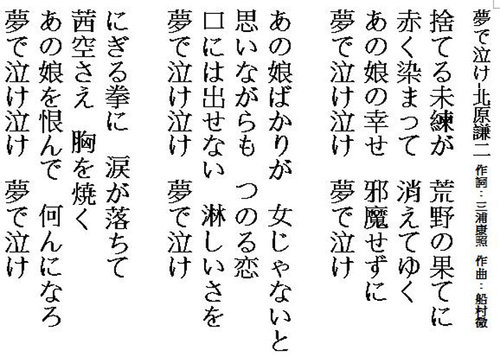 夢で泣け–北原謙二 作詞：三浦康照 作曲：船村徹
捨てる未練が 荒野の果てに
赤く染まって 消えてゆく
あの娘の幸せ 邪魔せずに
夢で泣け泣け 夢で泣け
あの娘ばかりが 女じゃないと
思いながらも つのる恋
口には出せない 淋しいさを
夢で泣け泣け 夢で泣け
にぎる拳に 涙が落ちて
茜空さえ 胸を焼く
あの娘を恨んで 何んになろ
夢で泣け泣け 夢で泣け